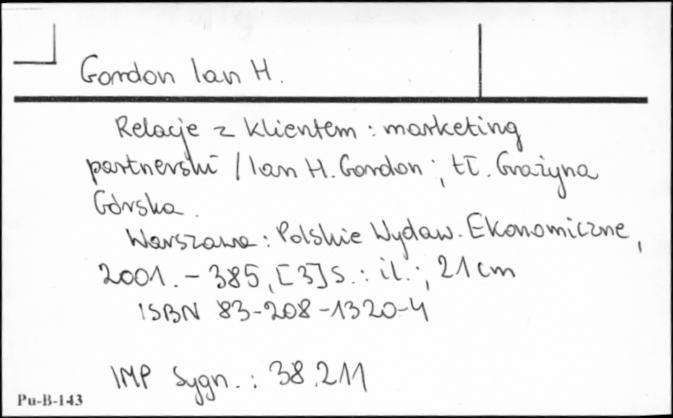 Gordon Ian H.
Relacje z klientem : marketing
partnerski / Ian H. Gordon ; tł. Grażyna
Górska.
Warszawa : Polskie Wydaw. Ekonomiczne,
2001. - 385, [3] s. : il. ; 21 cm
ISBN 83-208-1320-4
IMP Sygn. : 38.211
Pu-B-143